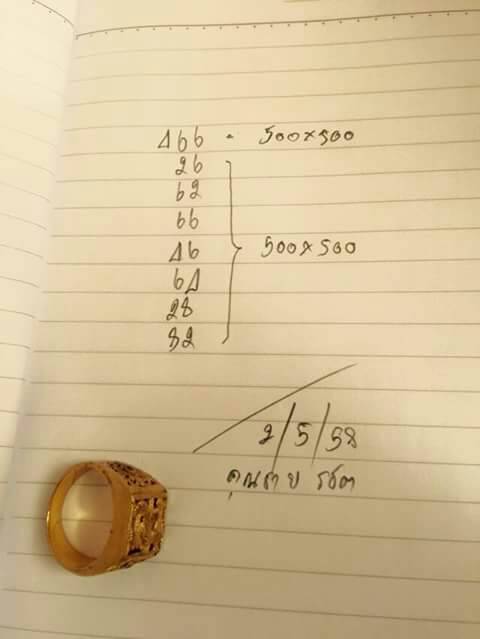 466 - 500x500
26
62
66
46
64
28
82
500x500
2/5/58
คุณชาย รชต